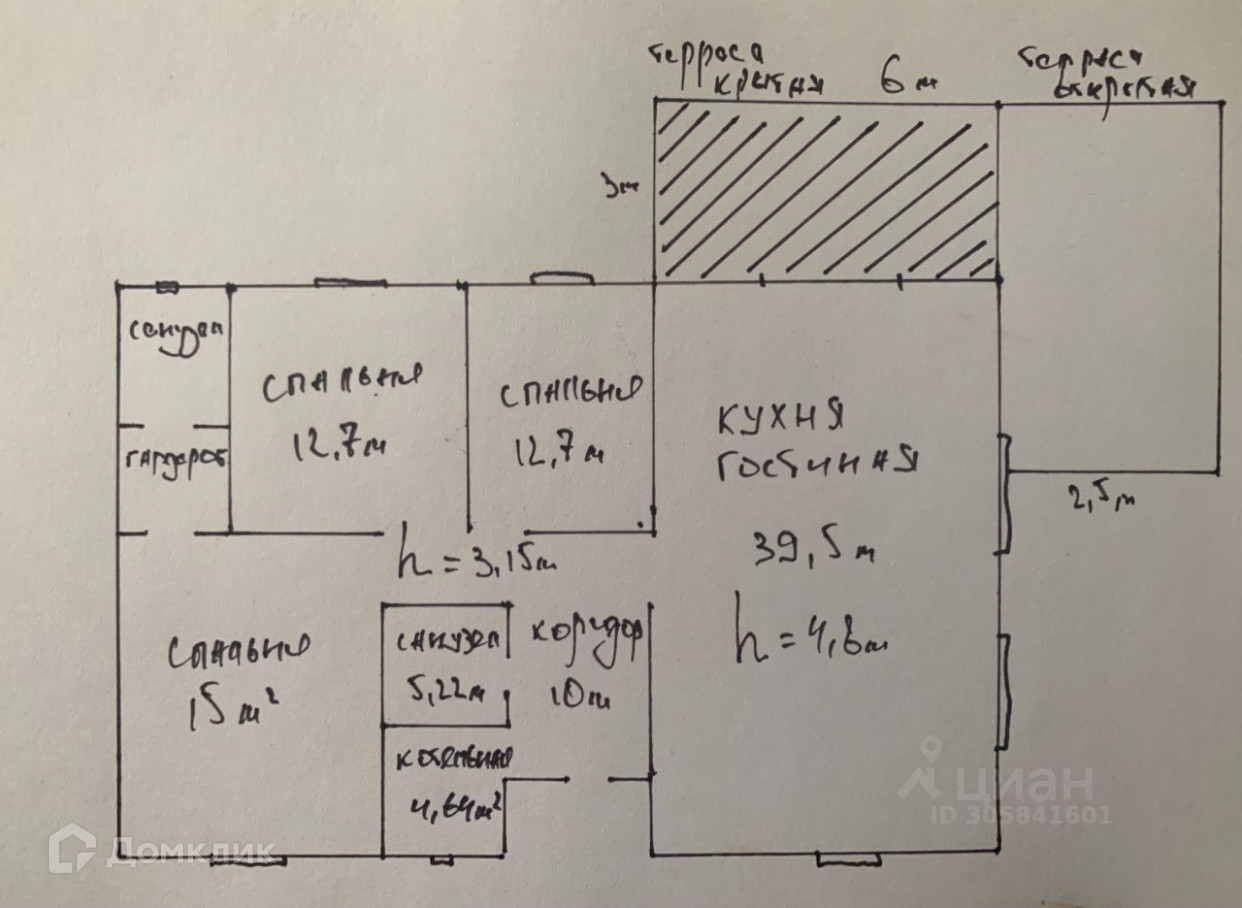 терраса
крытая
6 м
терраса
открытая
3м
санузел
спальня
12,7м
спальня
12,7м
кухня
гостиная
39,5м
h=4,8м
гардероб
2,5м
h=3,15м
спальня
15м²
санузел
5,22м
коридор
10м
котельная
4,64м²
циан
ID 305841601
Домклик